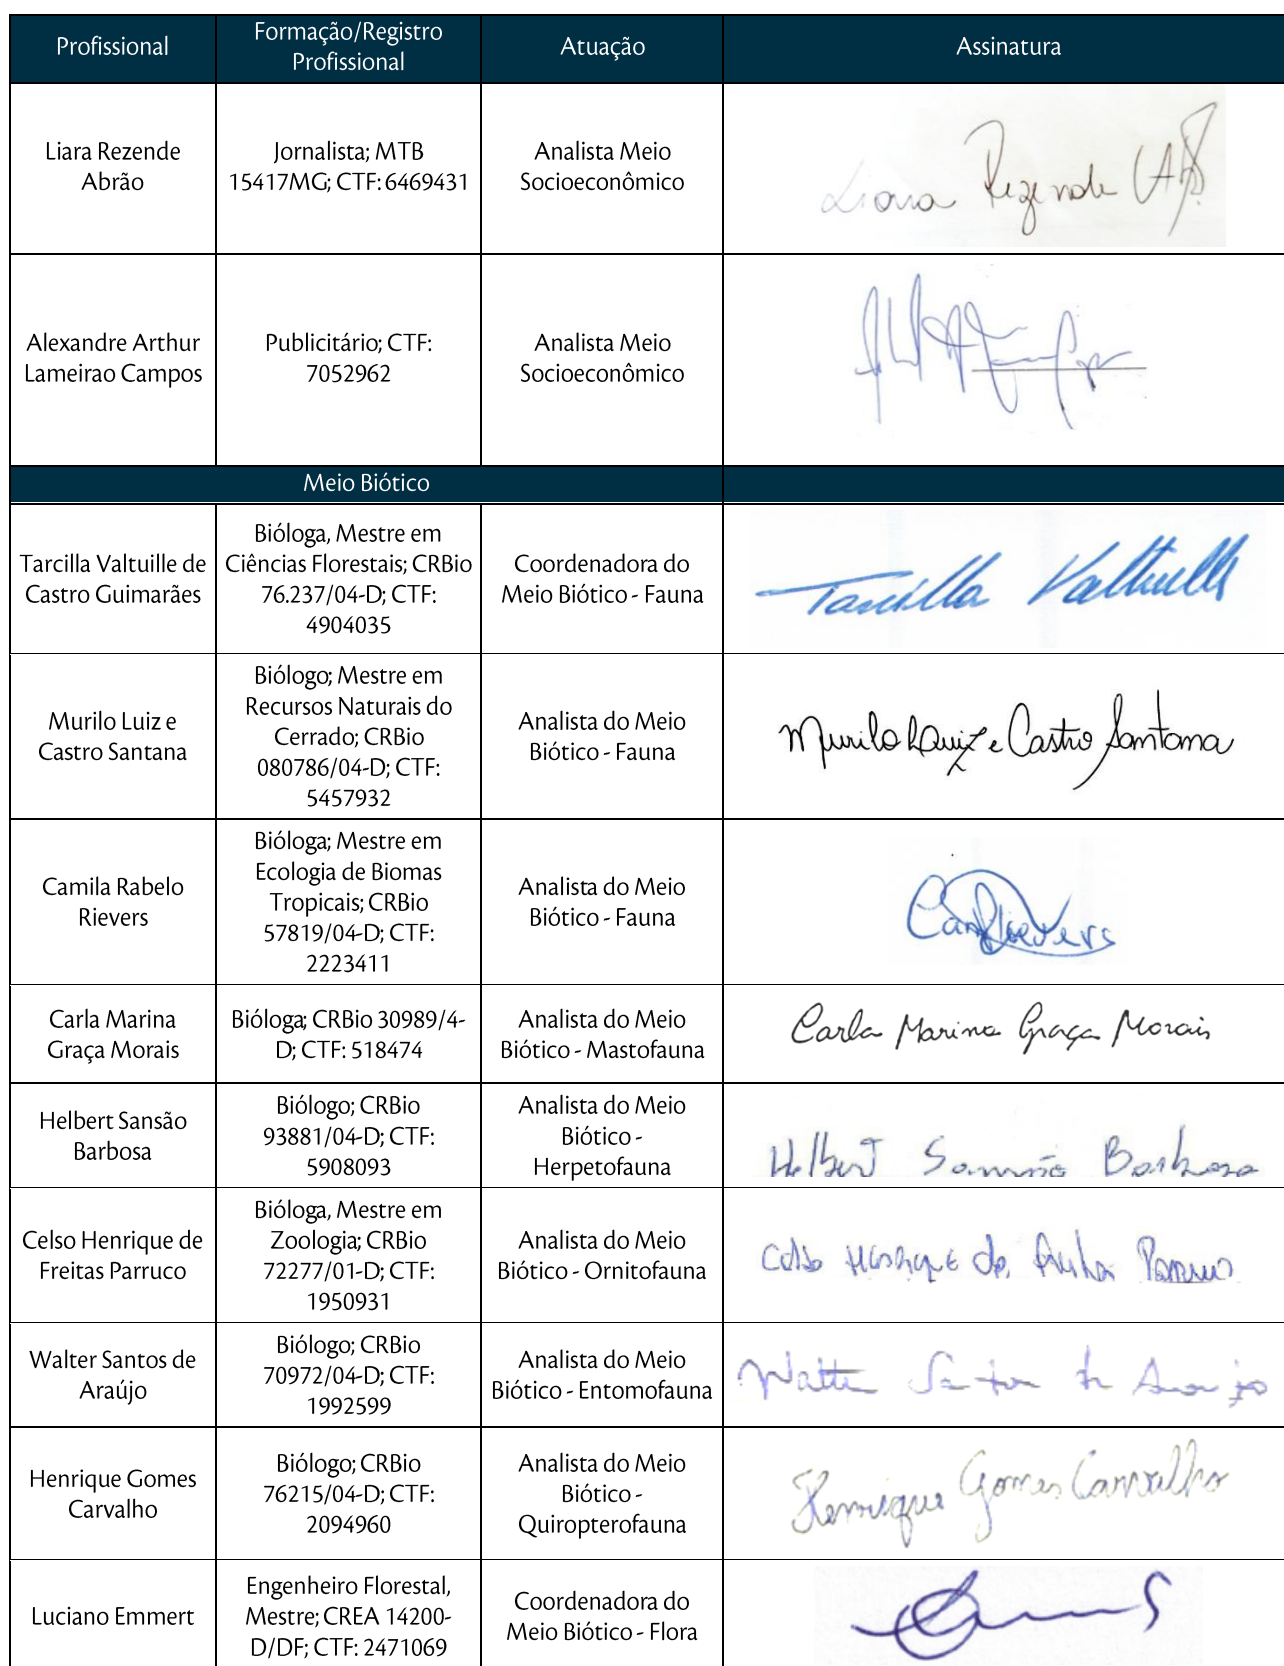 Profissional
Formação/Registro
Profissional
Atuação
Assinatura
Liara Rezende
Abrão
Jornalista; MTB
15417MG; CTF: 6469431
Analista Meio
Socioeconômico
Liara Rezende
Alexandre Arthur
Lameirao Campos
Publicitário; CTF:
7052962
Analista Meio
Socioeconômico
Meio Biótico
Tarcilla Valtuille de
Castro Guimarães
Bióloga, Mestre em
Ciências Florestais; CRBio
76.237/04-D; CTF:
4904035
Coordenadora do
Meio Biótico - Fauna
Tarcilla Valtuille
Murilo Luiz e
Castro Santana
Biólogo; Mestre em
Recursos Naturais do
Cerrado; CRBio
080786/04-D; CTF:
5457932
Analista do Meio
Biótico - Fauna
Murilo Luiz e Castro Santana
Camila Rabelo
Rievers
Bióloga; Mestre em
Ecologia de Biomas
Tropicais; CRBio
57819/04-D; CTF:
2223411
Analista do Meio
Biótico - Fauna
Carla Marina
Graça Morais
Bióloga; CRBio 30989/4-
D; CTF: 518474
Analista do Meio
Biótico - Mastofauna
Carla Marina Graça Morais
Helbert Sansão
Barbosa
Biólogo; CRBio
93881/04-D; CTF:
5908093
Analista do Meio
Biótico -
Herpetofauna
Helbert Sansão Barbosa
Celso Henrique de
Freitas Parruco
Bióloga, Mestre em
Zoologia; CRBio
72277/01-D; CTF:
1950931
Analista do Meio
Biótico - Ornitofauna
Celso Henrique de Freitas Parruco
Walter Santos de
Araújo
Biólogo; CRBio
70972/04-D; CTF:
1992599
Analista do Meio
Biótico - Entomofauna
Walter Santos de Araújo
Henrique Gomes
Carvalho
Biólogo; CRBio
76215/04-D; CTF:
2094960
Analista do Meio
Biótico -
Quiropterofauna
Henrique Gomes Carvalho
Luciano Emmert
Engenheiro Florestal,
Mestre; CREA 14200-
D/DF; CTF: 2471069
Coordenadora do
Meio Biótico - Flora